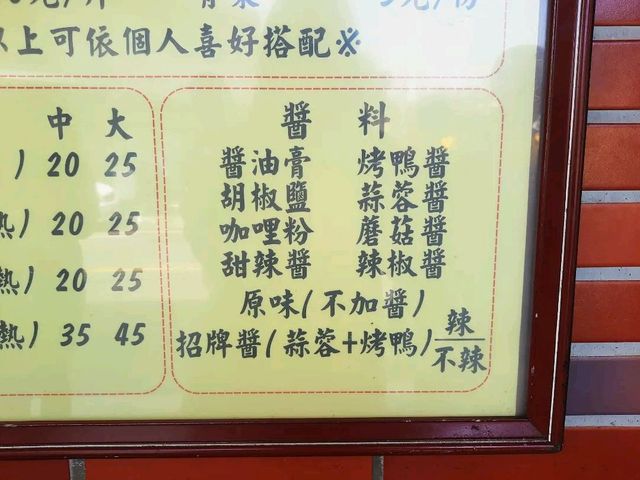 以上可依個人喜好搭配※
中 大
) 20 25
熱) 20 25
熱) 20 25
熱) 35 45
醬 料
醬油膏 烤鴨醬
胡椒鹽 蒜蓉醬
咖哩粉 蘑菇醬
甜辣醬 辣椒醬
原味(不加醬)
招牌醬(蒜蓉+烤鴨)辣/不辣